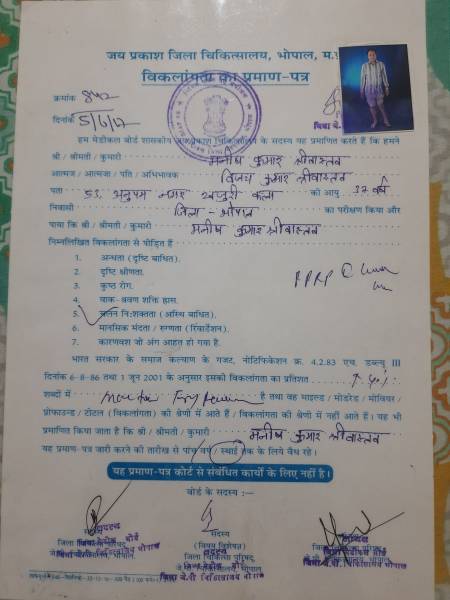 जय प्रकाश जिला चिकित्सालय, भोपाल, म.प्र.
विकलांगता का प्रमाण-पत्र
क्रमांक 842
दिनांक 5/6/12
हम मेडीकल बोर्ड शासकीय जय प्रकाश चिकित्सालय के सदस्य यह प्रमाणित करते हैं कि हमने
श्री / श्रीमती / कुमारी मनीष कुमार श्रीवास्तव
आत्मज / आत्मजा / पति / अभिभावक विजय कुमार श्रीवास्तव
पता 53, अनुपम नगर खजुरी कला की आयु 37 वर्ष
निवासी जिला - भोपाल का परीक्षण किया और
पाया कि श्री / श्रीमती / कुमारी मनीष कुमार श्रीवास्तव
निम्नलिखित विकलांगता से पीड़ित हैं
1. अन्धता (दृष्टि बाधित).
2. दृष्टि क्षीणता.
3. कुष्ठ रोग.
4. वाक-श्रवण शक्ति ह्रास.
5. चलन निःशक्तता (अस्थि बाधित).
6. मानसिक मंदता / रुग्णता (रिटार्डेशन).
7. कारणवश जो अंग आहत हो गया है.
भारत सरकार के समाज कल्याण के गजट, नोटिफिकेशन क्र. 4.2.83 एच. डब्ल्यु III
दिनांक 6-8-86 तथा 1 जून 2001 के अनुसार इसकी विकलांगता का प्रतिशत
शब्दों में है तथा वह माइल्ड / मोडरेड / सीवियर /
प्रोफाउन्ड / टोटल (विकलांगता) की श्रेणी में आते हैं / विकलांगता की श्रेणी में नहीं आते हैं। यह भी
प्रमाणित किया जाता है कि श्री / श्रीमती / कुमारी मनीष कुमार श्रीवास्तव
यह प्रमाण-पत्र जारी करने की तारीख से पांच वर्ष / स्थाई तक के लिये वैध रहे।
यह प्रमाण-पत्र कोर्ट से संबंधित कार्यों के लिए नहीं है।
बोर्ड के सदस्य :—
सदस्य
(विषय विशेषज्ञ)
जिला चिकित्सा परिषद्,